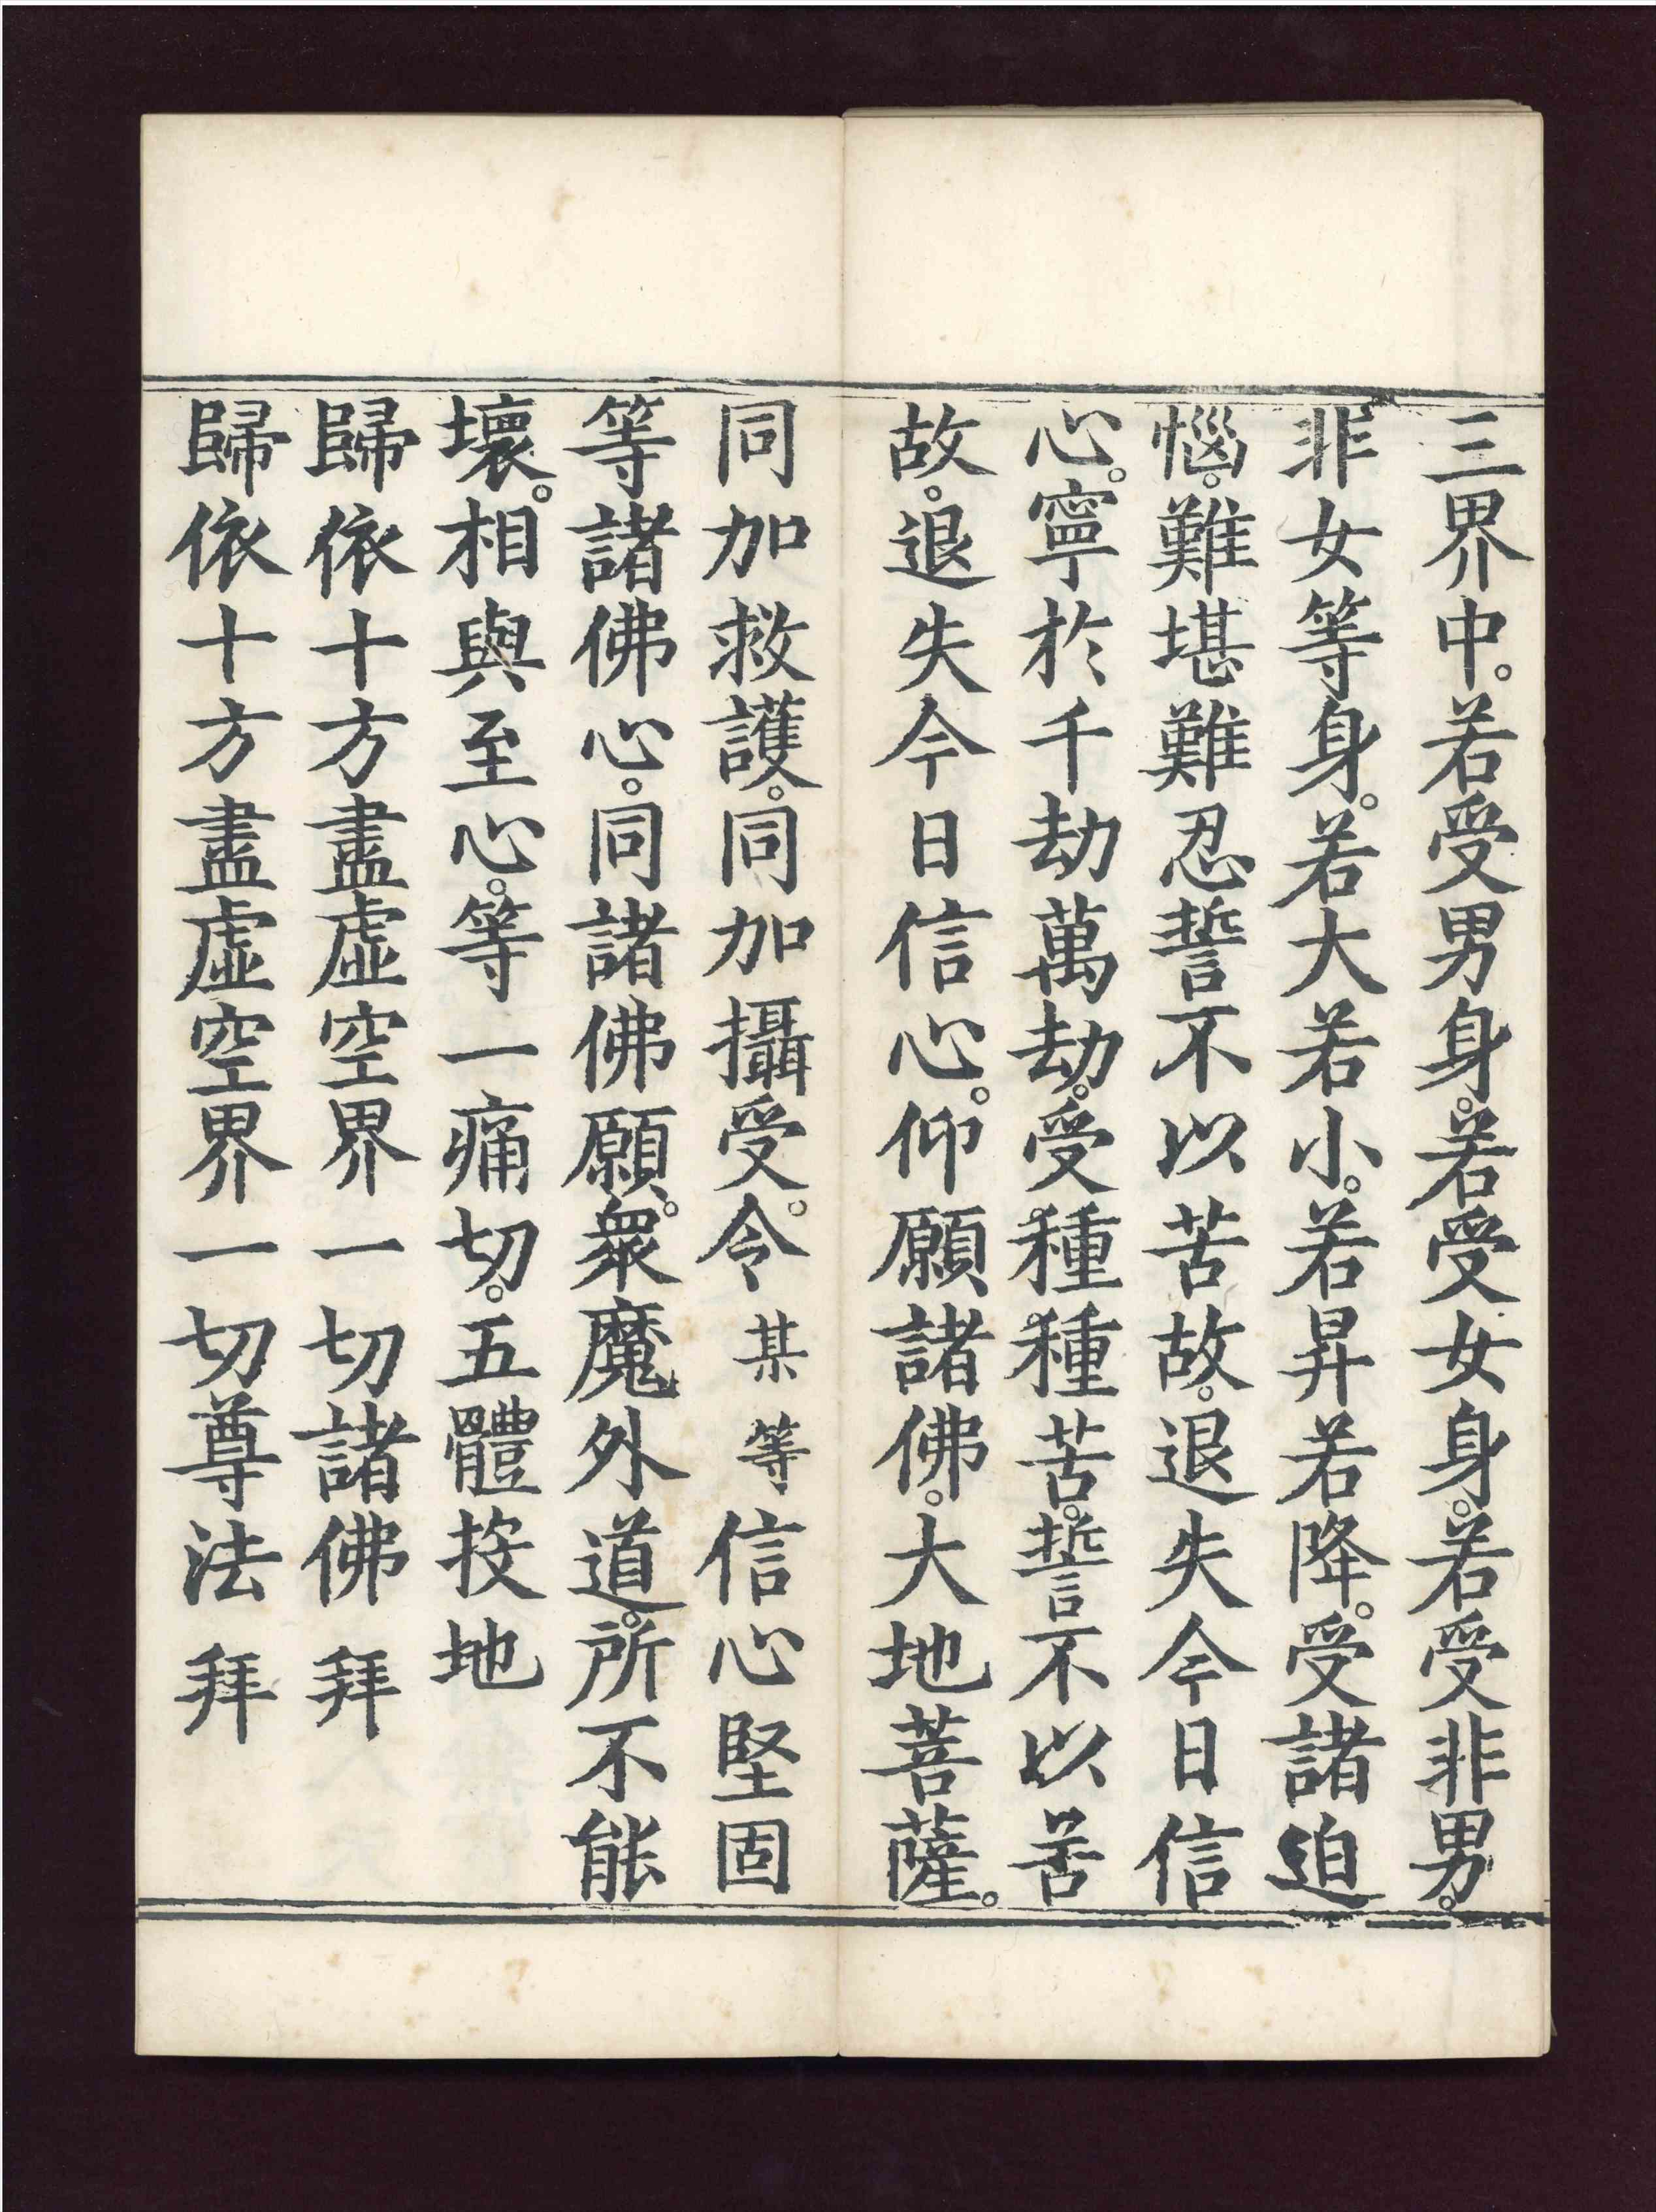 三界中。若受男身。若受女身。若受非男。
非女等身。若大若小。若昇若降。受諸迫
惱。難堪難忍誓不以苦故。退失今日信
心。寧於千劫萬劫。受種種苦。誓不以苦
故。退失今日信心。仰願諸佛。大地菩薩。
同加救護。同加攝受。令某等信心堅固
等諸佛心。同諸佛願。衆魔外道。所不能
壞。相與至心。等一痛切。五體按地
歸依十方盡虛空界一切諸佛拜
歸依十方盡虛空界一切尊法拜